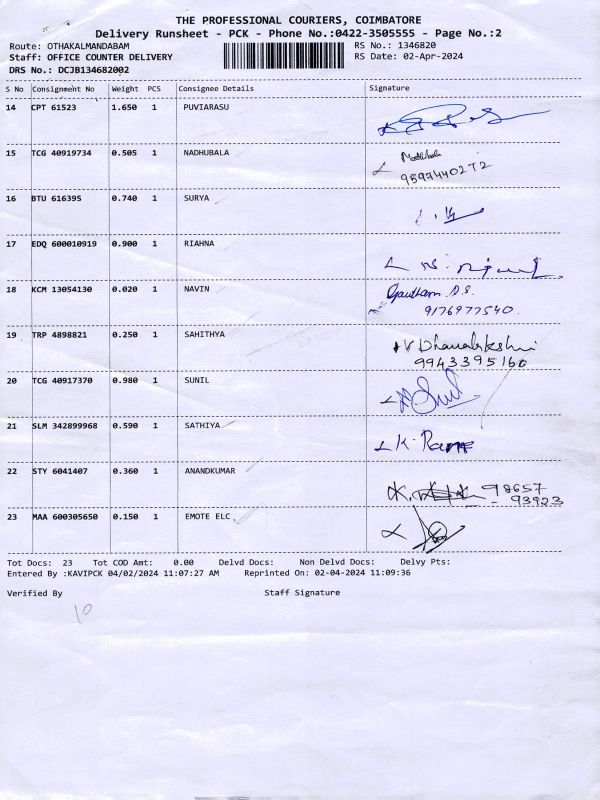 THE PROFESSIONAL COURIERS, COIMBATORE
Delivery Runsheet - PCK - Phone No.:0422-3505555 - Page No.:2
Route: OTHAKALMANDABAM RS No.: 1346820
Staff: OFFICE COUNTER DELIVERY RS Date: 02-Apr-2024
DRS No.: DCJB134682002
S No Consignment No Weight PCS Consignee Details Signature
14 CPT 61523 1.650 1 PUVIARASU
15 TCG 40919734 0.505 1 NADHUBALA Madhubala
9597440272
16 BTU 616395 0.740 1 SURYA
17 EDQ 600010919 0.900 1 RIAHNA
18 KCM 13054130 0.020 1 NAVIN Gautham D.S.
9176977540.
19 TRP 4898821 0.250 1 SAHITHYA V Dhanalakshmi
9943395160
20 TCG 40917370 0.980 1 SUNIL Sunil
21 SLM 342899968 0.590 1 SATHIYA K.
22 STY 6041407 0.360 1 ANANDKUMAR 98657
93923
23 MAA 600305650 0.150 1 EMOTE ELC
Tot Docs: 23 Tot COD Amt: 0.00 Delvd Docs: Non Delvd Docs: Delvy Pts:
Entered By :KAVIPCK 04/02/2024 11:07:27 AM Reprinted On: 02-04-2024 11:09:36
Verified By Staff Signature
10